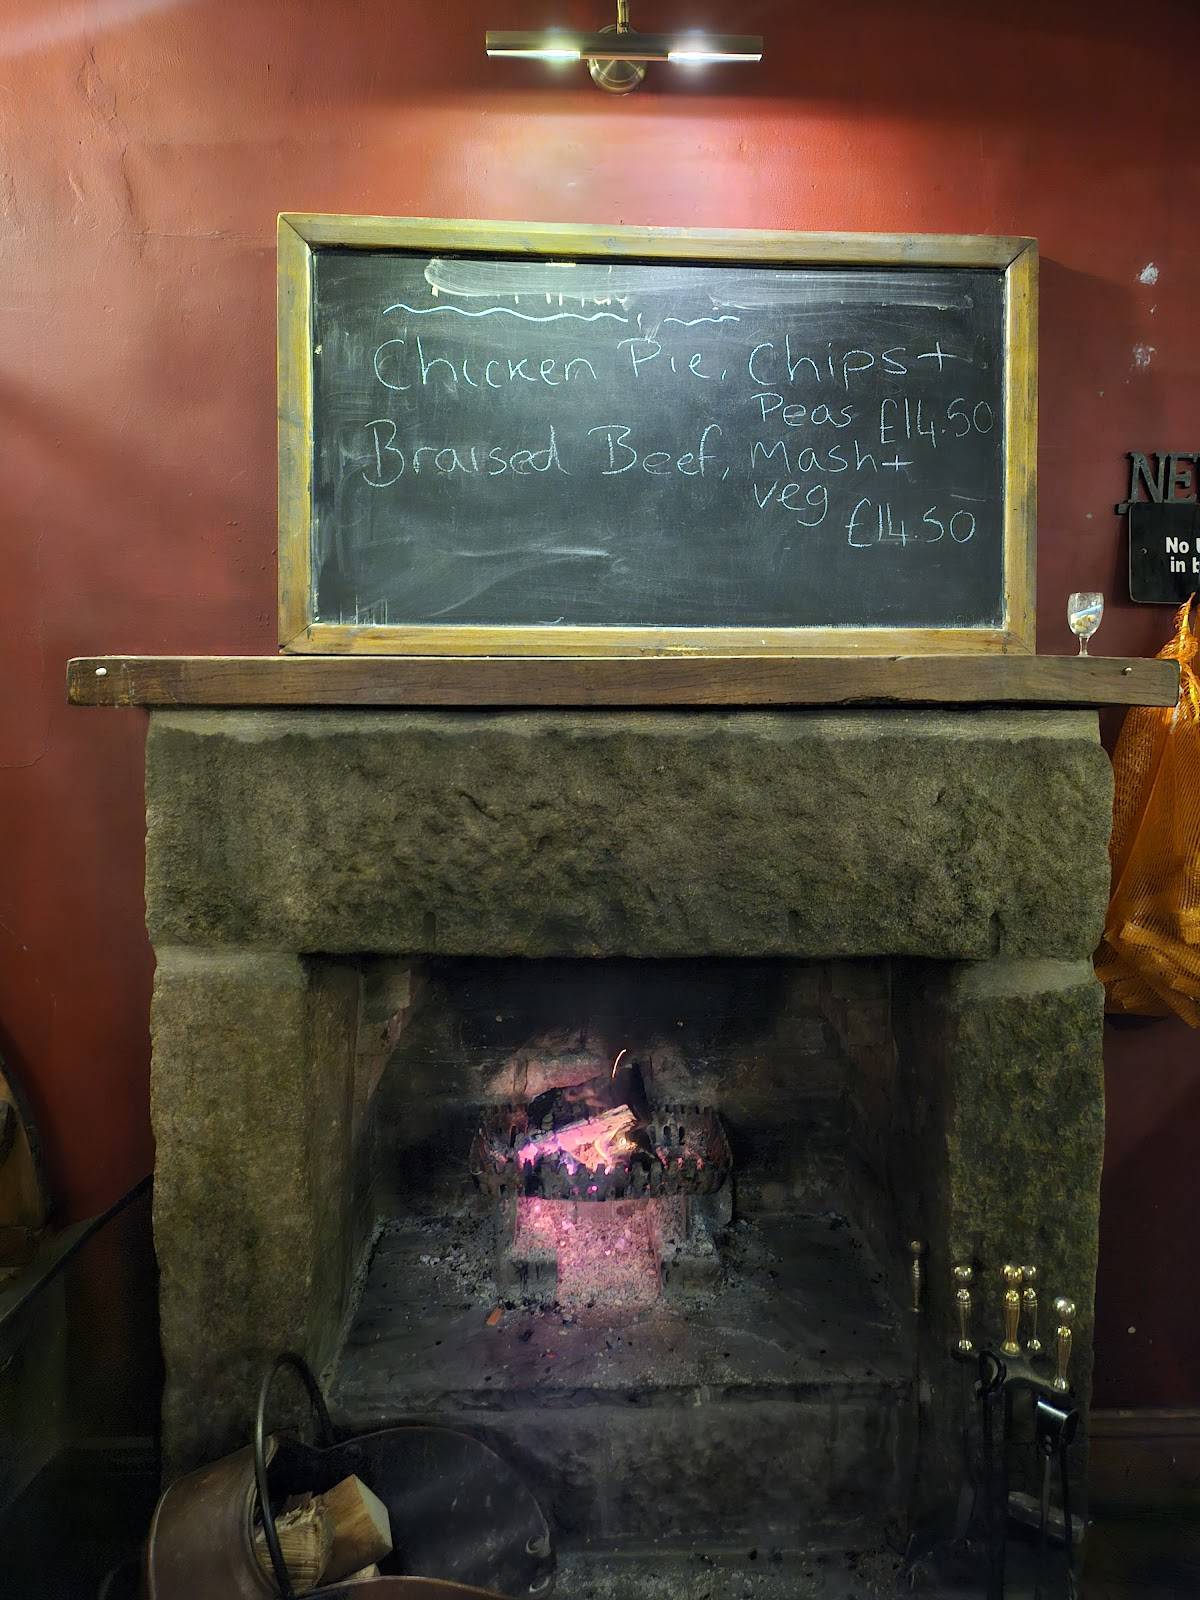 Chicken Pie, Chips +
Peas £14.50
Braised Beef, Mash +
veg
£14.50
No
in